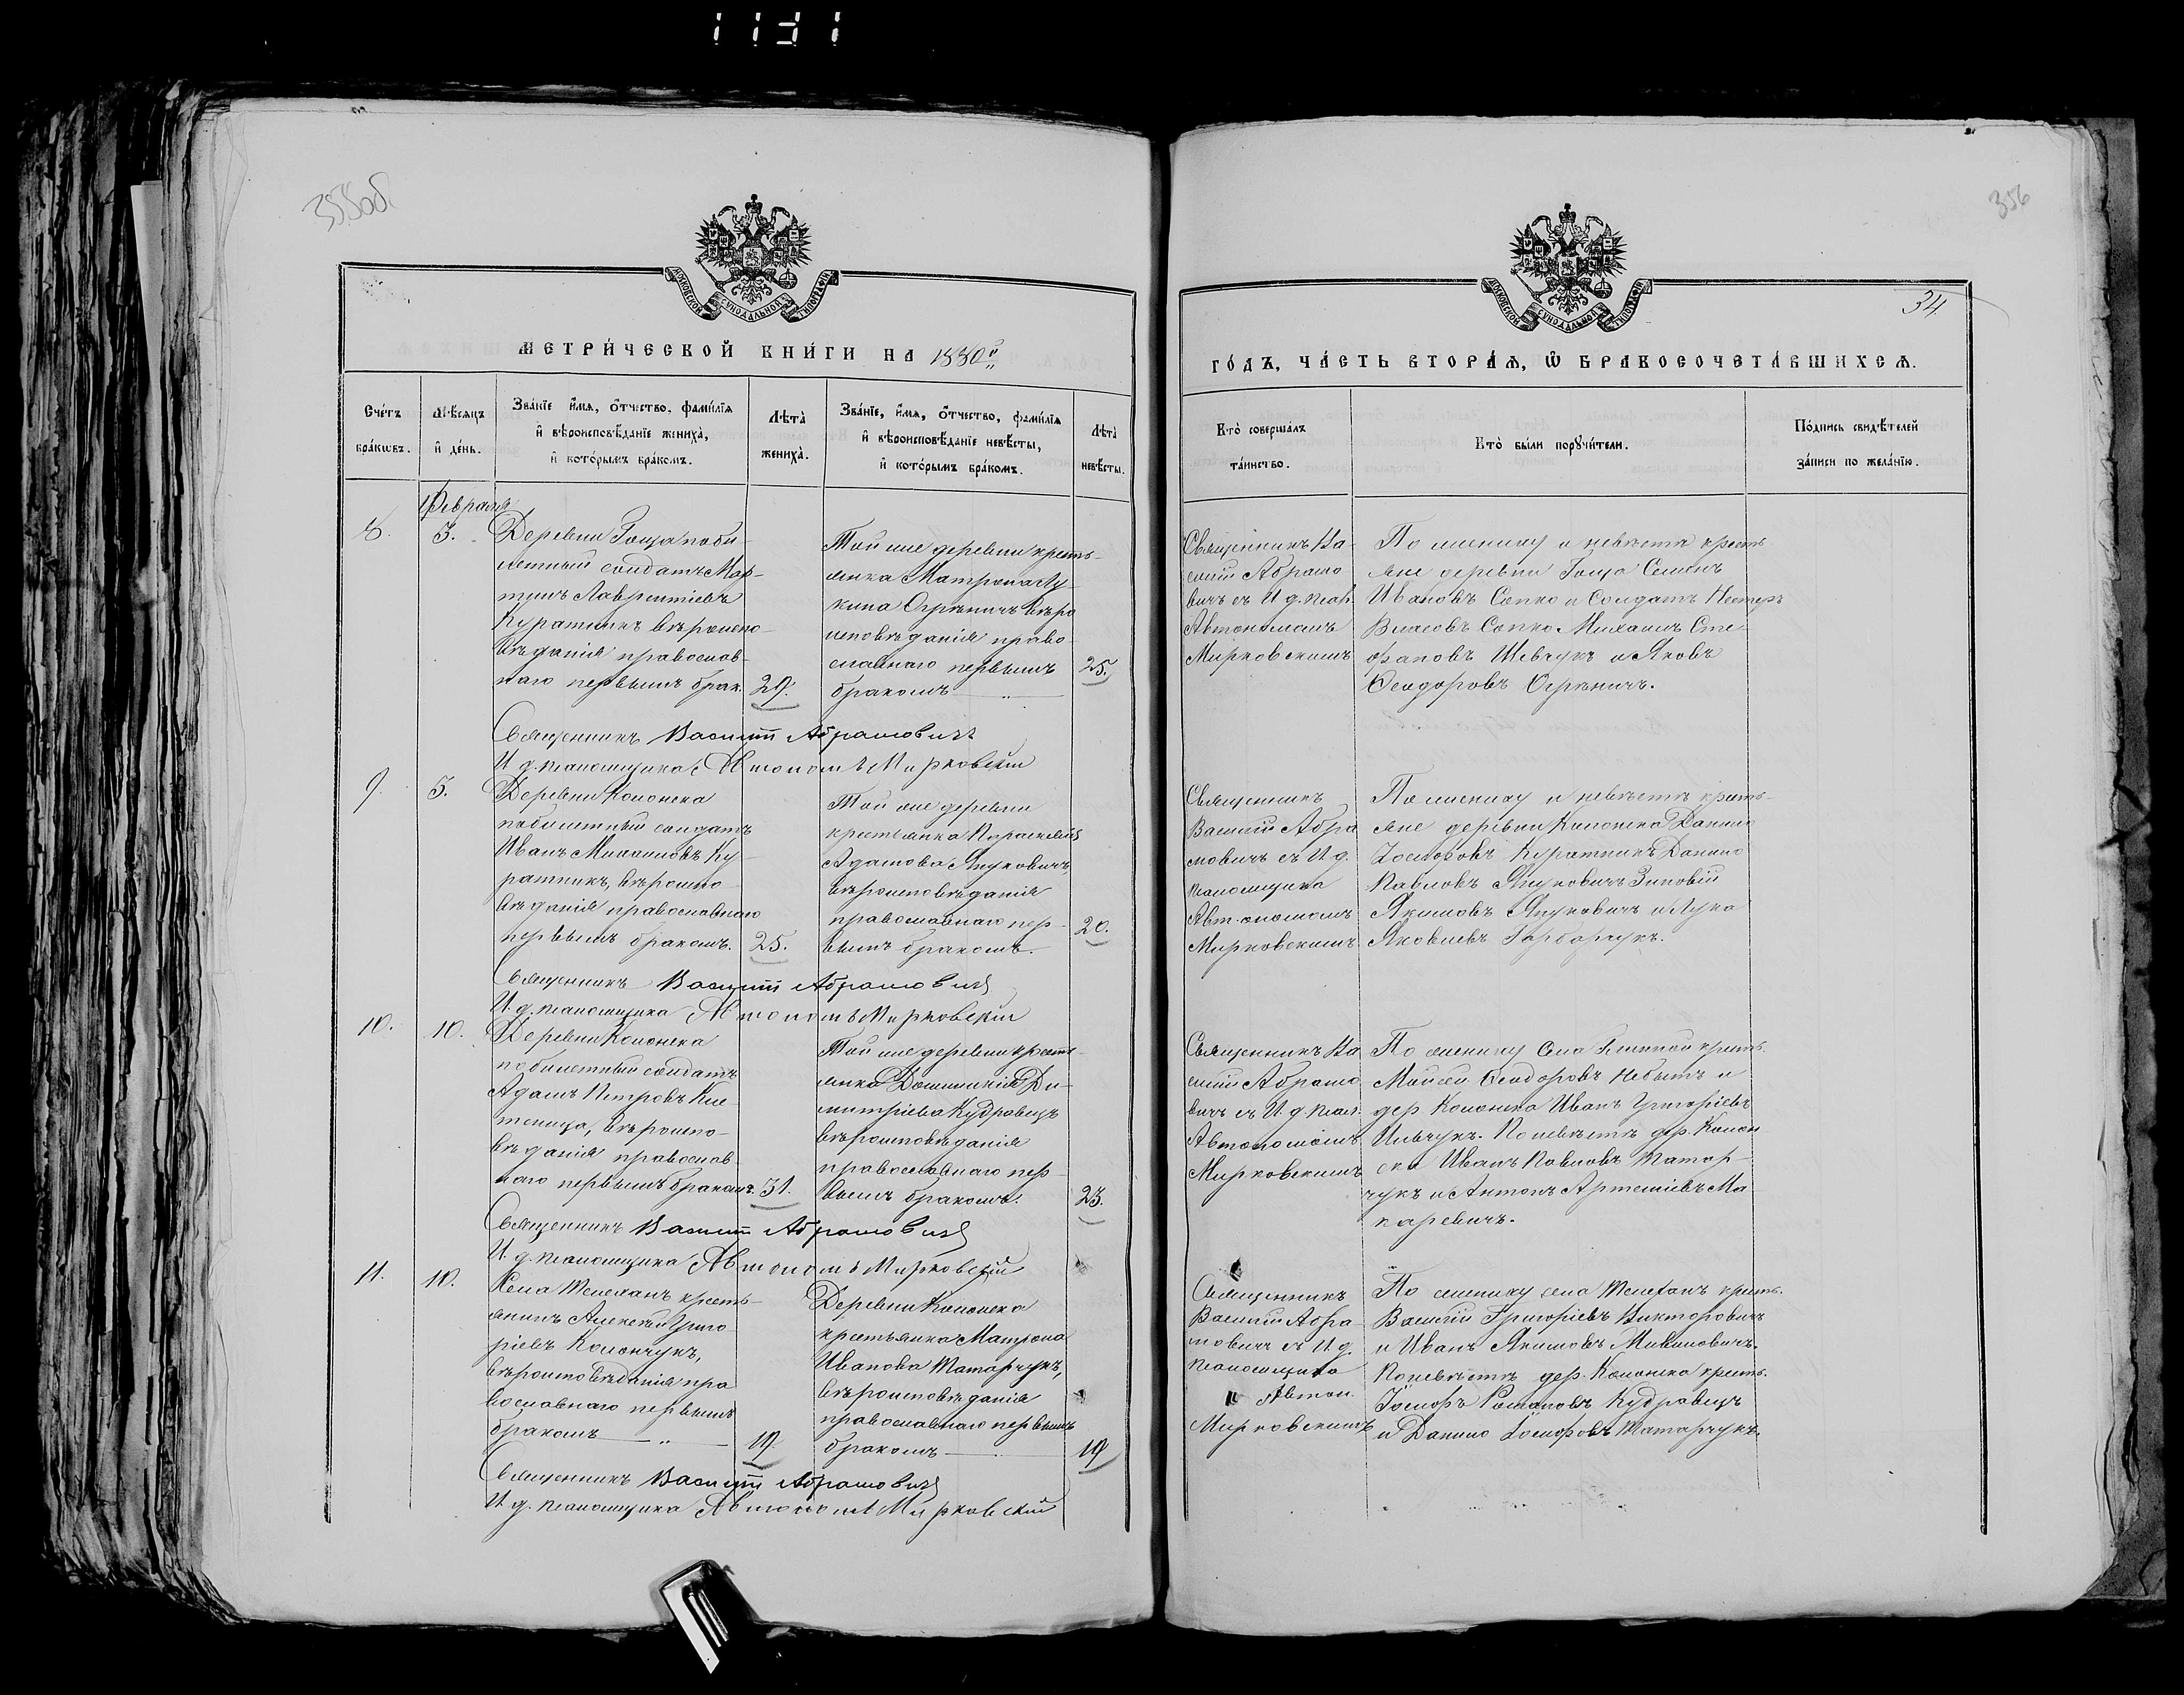 355об.
356
34
МОСКОВСКОЙ СѴНОДАЛЬНОЙ ТИПОГРАФІИ
МОСКОВСКОЙ СѴНОДАЛЬНОЙ ТИПОГРАФІИ
МЕТРИ́ЧЕСКОЙ КНИ́ГИ НА 1880й
ГО́ДЪ, ЧА́СТЬ ВТОРА́Ѧ, Ѽ БРАКОСОЧЕТА́ВШИХСѦ.
Сче́тъ бра́кѡвъ.
Мѣ́сяцъ и҆ де́нь.
Зва́нїе и҆́мѧ, ѻ҆́тчество, фами́лїѧ и҆ вѣроисповѣ́данїе жениха̀, и҆ кото́рымъ бра́комъ.
Лѣта̀ жениха̀.
Зва́нїе, и҆́мѧ, ѻ҆́тчество, фами́лїѧ и҆ вѣроисповѣ́данїе невѣ́сты, и҆ кото́рымъ бра́комъ.
Лѣта̀ невѣ́сты.
Кто̀ соверша́лъ та́инство.
Кто̀ бы́ли порꙋчи́тели.
По́дпись свидѣ́телей за́писи по жела́нїю.
Февраля
8.
3.
Деревни Гоща поби-
летный солдатъ Мар-
тинъ Лаврентіевъ
Куратникъ вѣроиспо-
вѣданія православ-
наго первымъ брак.
29.
Той же деревни кресть-
янка Матрона Лу-
кина Огрѣничъ вѣро
исповѣданія право-
славнаго первымъ
бракомъ
25.
Священникъ Ва-
силій Абрамо
вичъ съ И. д. псал.
Автономомъ
Мирковскимъ
По жениху и невѣстѣ кресть
яне деревни Гоща Семенъ
Ивановъ Сопко и Солдатъ Нестеръ
Власовъ Сопко. Михаилъ Сте
фановъ Шевчукъ и Яковъ
Ѳеодоровъ Огрѣничъ.
Священникъ Василій Абрамовичъ
И. д. псаломщика Автономъ Мирковскій
9.
5.
Деревни Колонска
побилетный солдатъ
Иванъ Михаиловъ Ку-
ратникъ, вѣроиспо
вѣданія православнаго
первымъ бракомъ.
25.
Той же деревни
крестьянка Параскевія
Адамова Януковичъ,
вѣроисповѣданія
православнаго пер-
вымъ бракомъ.
20.
Священникъ
Василій Абра
мовичъ съ И. д.
псаломщика
Автономомъ
Мирковскимъ
По жениху и невѣстѣ кресть-
яне деревни Колонска Данило
Іосифовъ Куратникъ Данило
Павловъ Януковичъ Зиновій
Якимовъ Януковичъ и Лука
Яковлевъ Гарбарчукъ.
Священникъ Василій Абрамовичъ
И. д. псаломщика Автономъ Мирковскій
10.
10.
Деревни Колонска
побилетный солдатъ
Адамъ Петровъ Кле
теница, вѣроиспо-
вѣданія православ-
наго первымъ бракомъ.
31.
Той же деревни кресть-
янка Домникія Ди-
митріева Кудравецъ
вѣроисповѣданія
православнаго пер-
вымъ бракомъ.
23.
Священникъ Ва
силій Абрамо
вичъ съ И. д. псал.
Автономомъ
Мирковскимъ
По жениху села кресть.
Моисей Ѳеодоровъ Небытъ и
дер. Колонска Иванъ Григоріевъ
Ильчукъ. По невѣстѣ дер. Колон
ска Иванъ Павловъ Татар-
чукъ и Антонъ Артеміевъ Ма
каревичъ.
Священникъ Василій Абрамовичъ
И. д. псаломщика Автономъ Мирковскій
11.
10.
Села Телеханъ кресть-
янинъ Алексѣй Григо-
ріевъ Колончукъ,
вѣроисповѣданія пра
вославнаго первымъ
бракомъ
19.
Деревни Колонска
крестьянка Матрона
Иванова Татарчукъ,
вѣроисповѣданія
православнаго первымъ
бракомъ
19
Священникъ
Василій Абра-
мовичъ съ И. д.
псаломщика
Автон.
Мирковскимъ
По жениху села Телеханъ кресть.
Василій Григоріевъ Викторовичъ
и Иванъ Якимовъ Микиповичъ.
По невѣстѣ дер. Колонска кресть.
Іосифъ Романовъ Кудравецъ
и Данило Іосифовъ Татарчукъ.
Священникъ Василій Абрамовичъ
И. д. псаломщика Автономъ Мирковскій